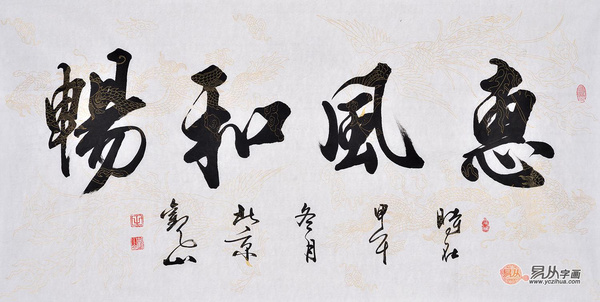 惠風和暢
時在
甲午
冬月
北京
山
易从
易从字画
www.yczihua.com